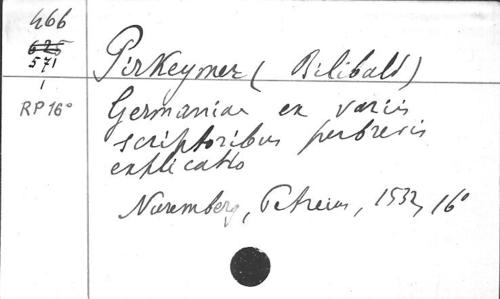 466
625
571
1
RP 16°
Pirkeymer ( Bilibald)
Germaniae ex variis
scriptoribus perbrevis
explicatio
Nuremberg, Petreius, 1532, 16°